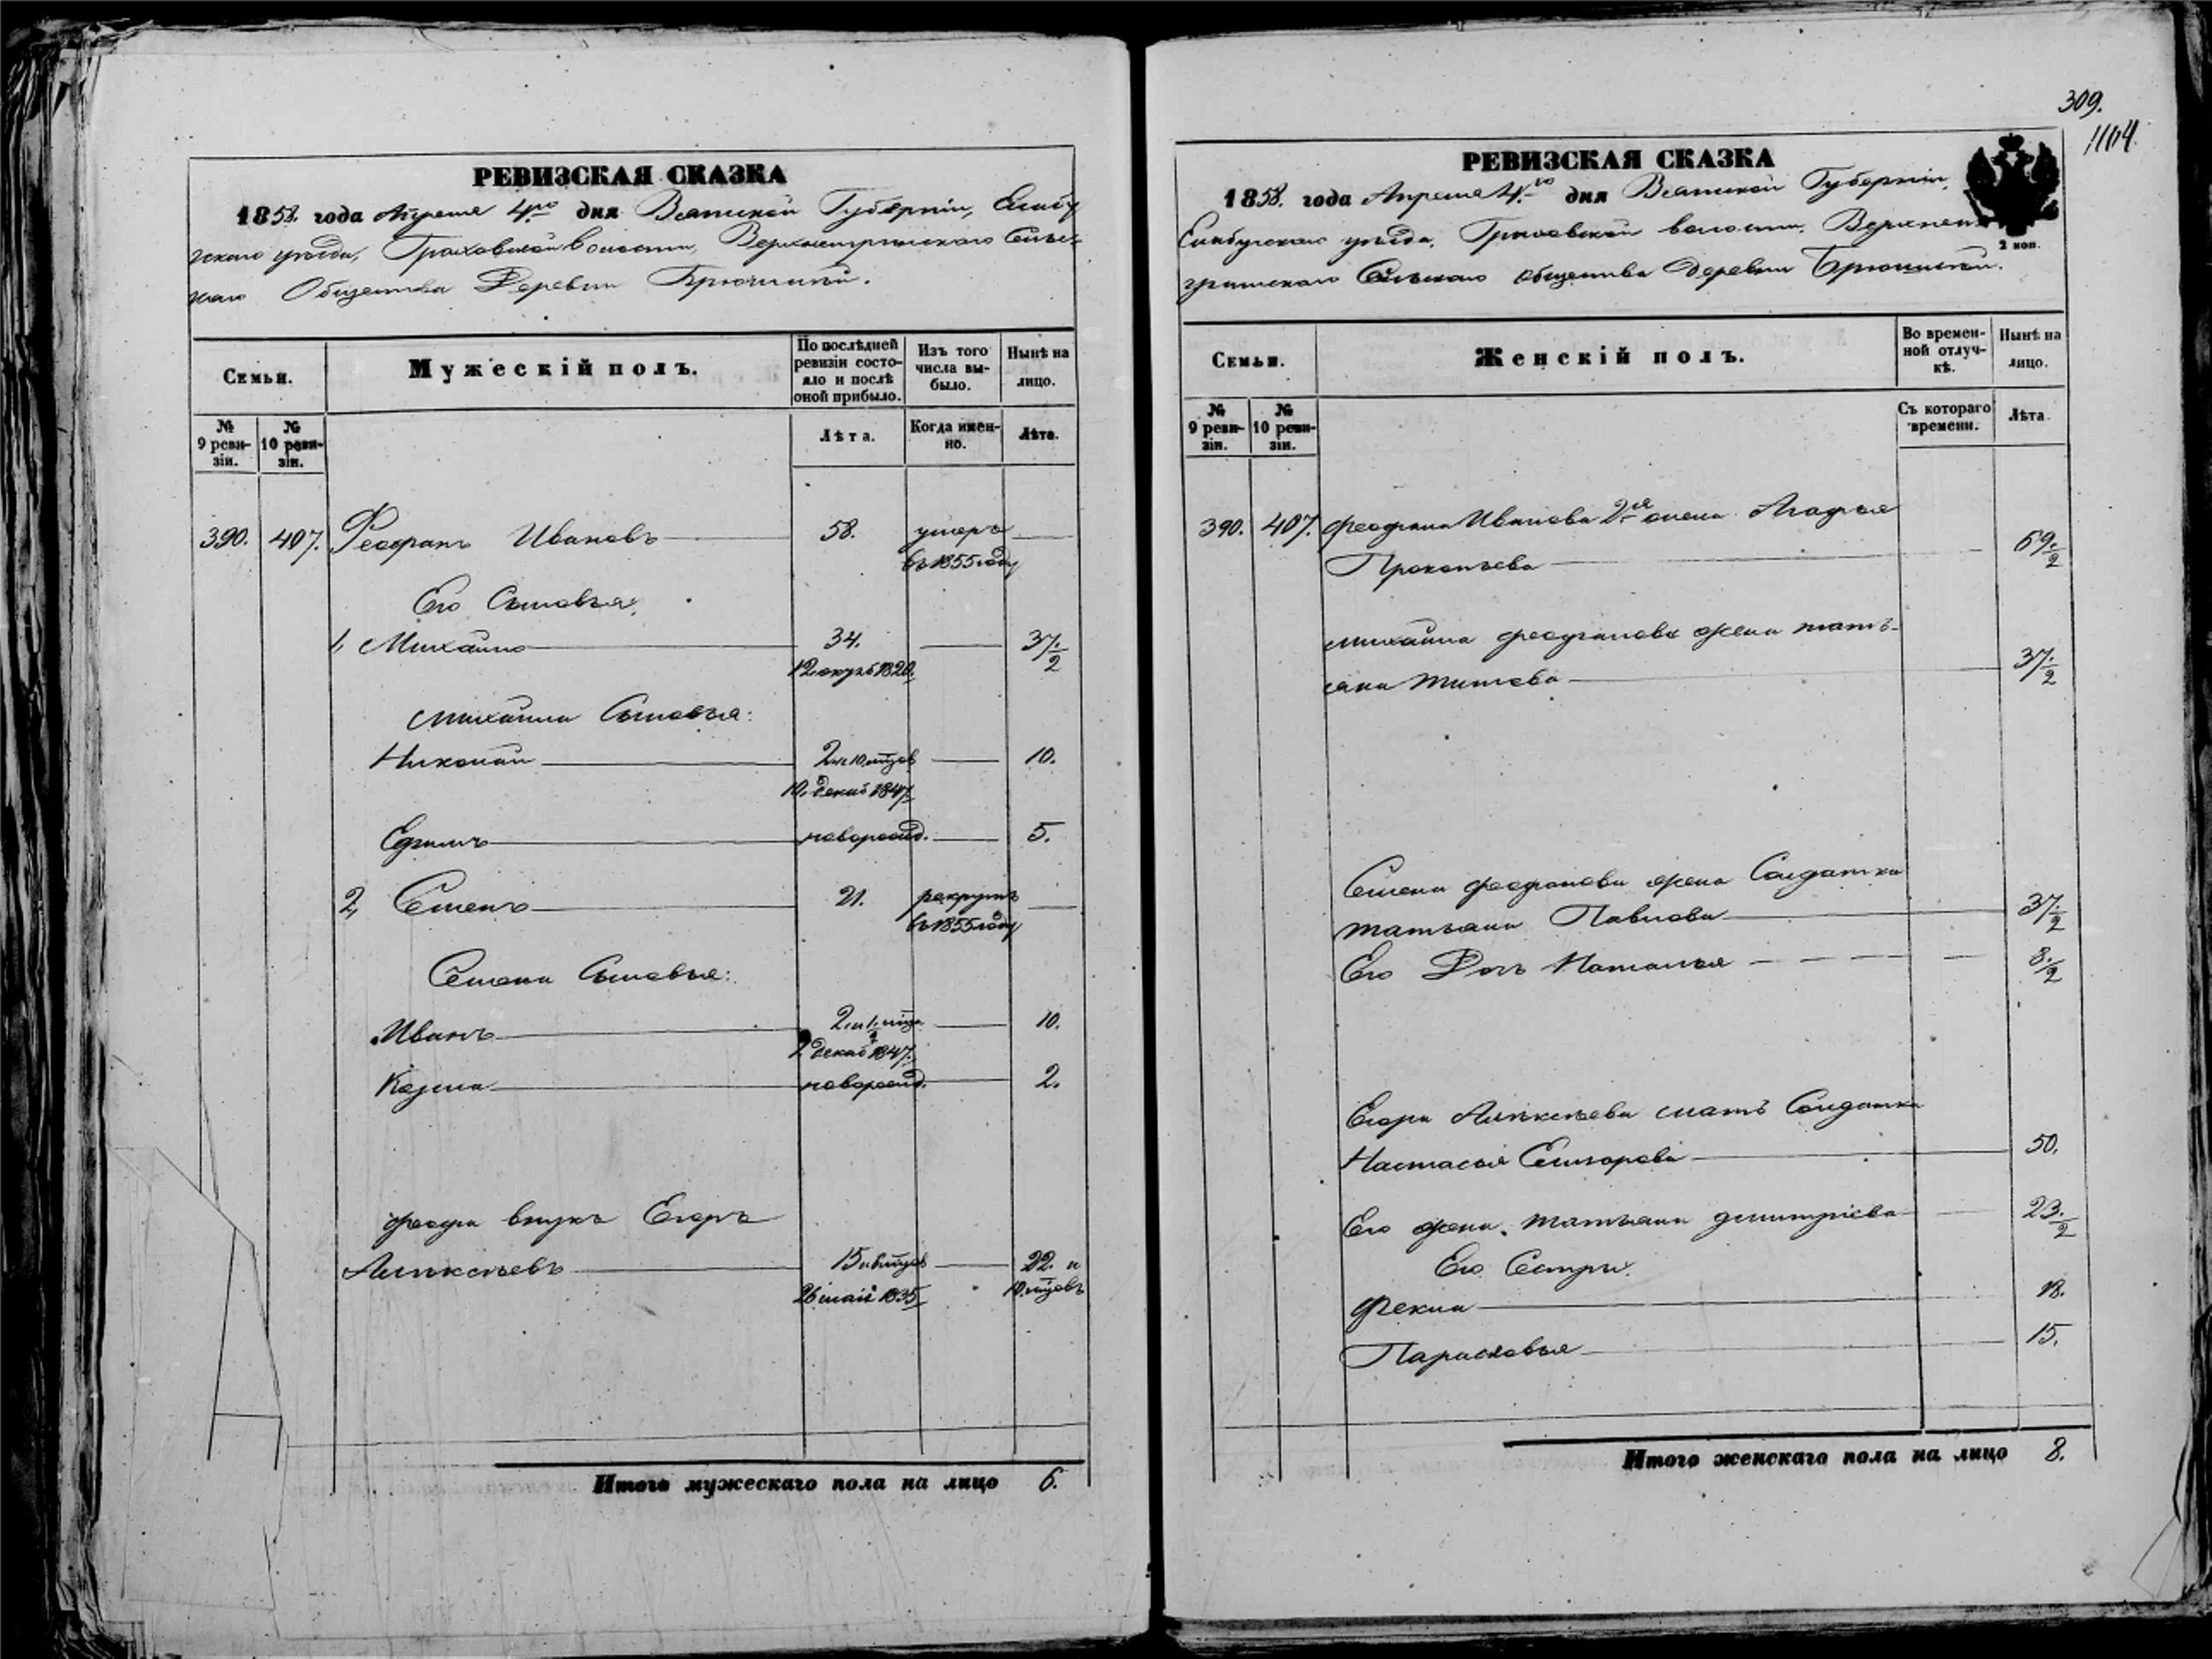 309.
1104.
РЕВИЗСКАЯ СКАЗКА
1858. года Апреля 4го дня Вятской Губерніи, Елабу
жскаго уѣзда, Граховской Волости,
каго Общества Деревни
Семьи.
Мужескій полъ.
По послѣдней ревизіи состояло и послѣ оной прибыло.
Изъ того числа выбыло.
Нынѣ на лицо.
№ 9 ревизіи.
№ 10 ревизіи.
Лѣта.
Когда именно.
Лѣта.
390. 407. Феофанъ Ивановъ 58. умеръ
въ 1855 году
Его Сыновья,
1, Михайло 34. 37 1/2
Михайла Сыновья:
Николай 2 и 10 мѣсяцов 10.
10. декаб 1847
Ефимъ новорожд. 5.
2, Семенъ 21. рекрутъ
въ 1855 году
Семена Сыновья:
Иванъ 10.
декаб 1847.
Козма новорожд. 2.
внукъ Егоръ
Алексѣевъ 22. и
26 маія 1835 10. мѣсяцовъ
Итого мужескаго пола на лицо 6.
РЕВИЗСКАЯ СКАЗКА
1858. года Апреля 4го дня Вятской Губерніи,
Елабужскаго уѣзда, Граховской волости,
Сельскаго общества деревни
2 коп.
Семьи.
Женскій полъ.
Во временной отлучкѣ.
Нынѣ на лицо.
№ 9 ревизіи.
№ 10 ревизіи.
Съ котораго времени.
Лѣта.
390. 407. Феофана Иванова 2я жена Агафья
Прокопьева
Михайла Феофанова жена Тать-
яна Титова 37 1/2
Семена Феофанова жена Солдатка
Татьяна Павлова 37 1/2
Его Дочь Наталья 8 1/2
Егора Алексѣева мать Солдатка
Настасья 50.
Его жена Татьяна Дмитріева 23 1/2
Его Сестры
Фекла 18.
Парасковья 15.
Итого женскаго пола на лицо 8.